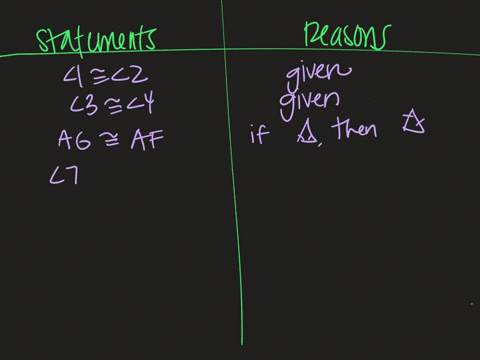 Statements Reasons
∠1 ≅ ∠2 given
∠3 ≅ ∠4 given
AG ≅ AF if △, then △
∠7